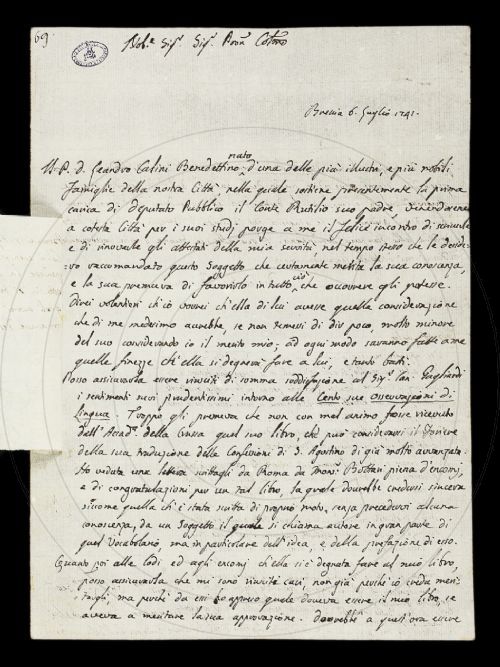 69.
Nob.e Sig.r Sig.r Pron Col.mo
Brescia 6. Luglio 1741.
Il P. D. Leandro Calini Benedettino, nato d'una delle più illustri, e più nobili
famiglie della nostra Città, nella quale sostiene presentemente la prima
carica di Deputato Pubblico il Conte Rutilio suo padre,
a cotesta Città per i suoi studj porge a me il felice incontro di
e di rinovarle gli attestati della mia servitù, nel tempo stesso che le deside-
ro raccomandato questo Soggetto che certamente merita la sua conoscenza,
e la sua premura di favorirlo in tutto ciò, che occorrere gli potesse.
Direi volontieri ch'io vorrei ch'ella di lui avesse quella considerazione
che di me medesimo avrebbe, se non temessi di dir poco, molto minore
del suo considerando io il merito mio; ad ogni modo saranno fatte a me
quelle finezze ch'ella si degnerà fare a lui, e tanto basti.
Posso assicurarla essere riusciti di somma soddisfazione al Sig.r Can. Gagliardi
i sentimenti suoi prudentissimi intorno alle Cento sue osservazioni di
lingua. Troppo gli premeva che non con mal animo fosse ricevuto
dell'Accad.a della Crusca quel suo libro, che può considerarsi il foriere
della sua traduzione delle Confessioni di S. Agostino di già molto avvanzata.
Ho veduta una lettera scrittagli da Roma da Mons.r Bottari piena d'encomj,
e di congratulazioni per un tal libro, la quale dovrebbe credersi sincera
siccome quella ch'è stata scritta di proprio moto, senza precedervi alcuna
conoscenza, da un Soggetto il quale si chiama autore in gran parte di
quel Vocabolario, ma in particolare dell'idea, e della prefazione di esso.
Quanto poi alle lodi ed agli encomj ch'ella s'è degnata fare al mio libro,
posso assicurarla che mi sono riusciti cari, non già perchè io creda meri-
targli, ma perchè da essi ho appreso quale doveva essere il mio libro, se
aveva a meritare la sua approvazione. Dovrebbe a quest'ora essere